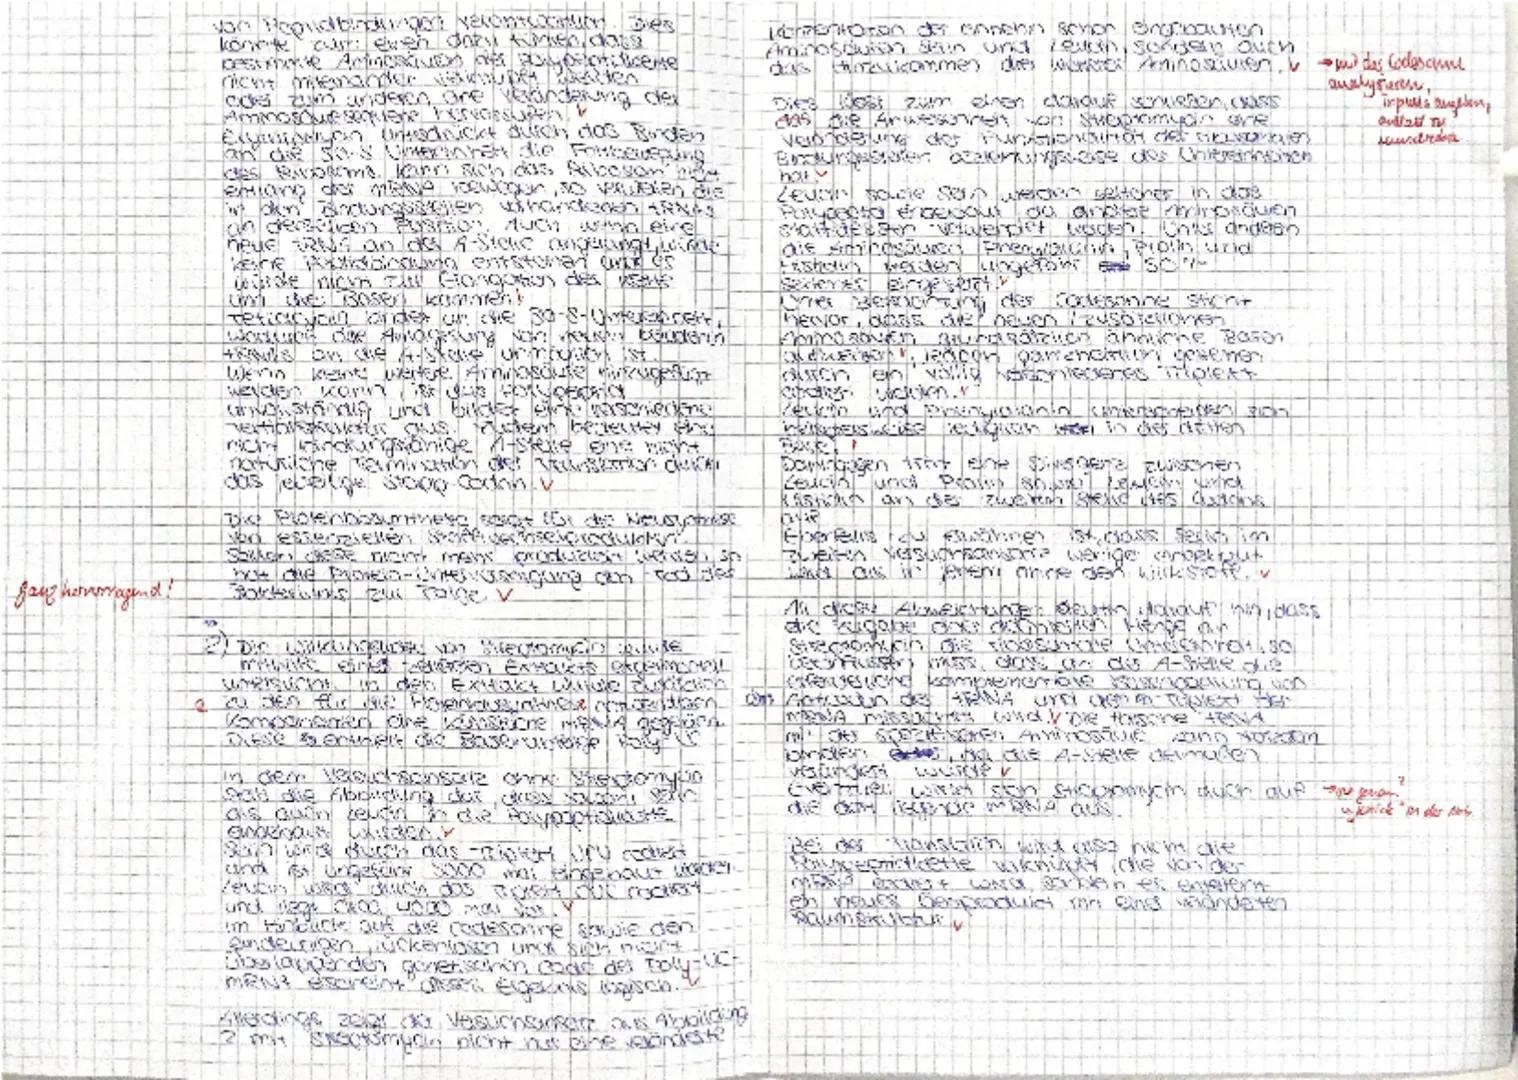 von Peptidbindungen verantwortlich. Dies
könnte zum einen dazu führen, dass
bestimmte Aminosäuren der Polypeptidkette
nicht miteinander verknüpft werden
oder zum anderen eine Veränderung der
Aminosäuresequenz
unterdrückt durch das Binden
an die 50-S Untereinheit die Fortbewegung
des Ribosoms. Kann sich das Ribosom nicht
entlang der mRNA bewegen, so verweilen die
in den Bindungsstellen vorhandenen tRNAs
an derselben Position. Auch wenn eine
neue tRNA an der A-Stelle angelangt, würde
keine Peptidbindung entstehen und es
würde nicht zur Elongation der Kette
um drei Basen kommen.
Tetracyclin bindet an die 30-S-Untereinheit,
wodurch die Anlagerung von neuen beladenen
tRNAs an die A-Stelle unmöglich ist.
Wenn keine weitere Aminosäure hinzugefügt
werden kann, ist das Polypeptid
unvollständig und bildet eine verschiedene
Tertiärstruktur aus. Zudem bedeutet eine
nicht bindungsfähige A-Stelle eine nicht
natürliche Termination der Translation durch
das jeweilige Stopp-Codon.
Die Proteinbiosynthese sorgt für die Neusynthese
von essenziellen Stoffwechselprodukten.
Sollten diese nicht mehr produziert werden, so
hat die Protein-Unterversorgung den Tod des
Bakteriums zur Folge.
ganz hervorragend!
2) Die Wirkungsweise von Streptomycin wurde
mithilfe eines zellfreien Extrakts experimentell
untersucht. In den Extrakt wurde zusätzlich
zu den für die Proteinbiosynthese notwendigen
Komponenten eine künstliche mRNA gegeben.
Diese enthielt die Basenabfolge Poly-UC
In dem Versuchsansatz ohne Streptomycin
stellt die Abbildung dar, dass sowohl Serin
als auch Leucin in die Polypeptidkette
eingebaut wurden.
Serin wird durch das Triplett UCU codiert
und ist ungefähr 5000 mal eingebaut worden.
Leucin wird durch das Triplett CUC codiert
und liegt circa 4000 mal vor.
Im Hinblick auf die Codesonne sowie den
eindeutigen, lückenlosen und sich nicht
überlappenden genetischen Code der Poly-UC-
mRNA erscheint dieses Ergebnis logisch.
Allerdings zeigt der Versuchsansatz aus Abbildung
2 mit Streptomycin nicht nur eine veränderte
Konzentration der ohnehin schon eingebauten
Aminosäuren Serin und Leucin, sondern auch
das Hinzukommen drei weiterer Aminosäuren.
→ mit der Codesonne
analysieren,
Tripletts angeben,
Dies lässt zum einen darauf schließen, dass
die Anwesenheit von Streptomycin eine
Veränderung der Funktionalität der ribosomalen
Bindungsstellen beziehungsweise der Untereinheiten
hat.
Leucin sowie Serin werden seltener in das
Polypeptid eingebaut, da andere Aminosäuren
stattdessen verwendet werden. Unter anderem
die Aminosäuren Phenylalanin, Prolin und
Histidin werden ungefähr 50%
seltener eingesetzt.
Unter Betrachtung der Codesonne sticht
hervor, dass die neuen / zusätzlichen
Aminosäuren grundsätzlich ähnliche Basen
aufweisen, jedoch ganzheitlich gesehen
durch ein völlig verschiedenes Triplett
codiert werden.
Leucin und Phenylalanin unterscheiden sich
beispielsweise lediglich in der dritten
Base.
Dahingegen tritt eine Divergenz zwischen
Leucin und Prolin sowie Leucin und
Histidin an der zweiten Stelle des Codons
auf.
Ebenfalls zu erwähnen ist, dass Serin im
zweiten Versuchsansatz weniger eingebaut
wird als in jenem ohne den Wirkstoff.
All diese Abweichungen deuten darauf hin, dass
die Zugabe einer Menge an
Streptomycin die ribosomale Untereinheit so
beeinflussen muss, dass an der A-Stelle die
erforderliche komplementäre Basenpaarung von
Anticodon der tRNA und dem Triplett der
mRNA missachtet wird. Die falsche tRNA
mit der spezifischen Aminosäure kann trotzdem
binden, da die A-Stelle dermaßen
verändert wurde.
Eventuell wirkt sich Streptomycin auch auf
die dort liegende mRNA aus.
in der Mitte
Bei der Translation wird also nicht die
Polypeptidkette verknüpft, die von der
mRNA codiert wird, sondern es entsteht
ein neues Genprodukt mit einer veränderten
Raumstruktur.